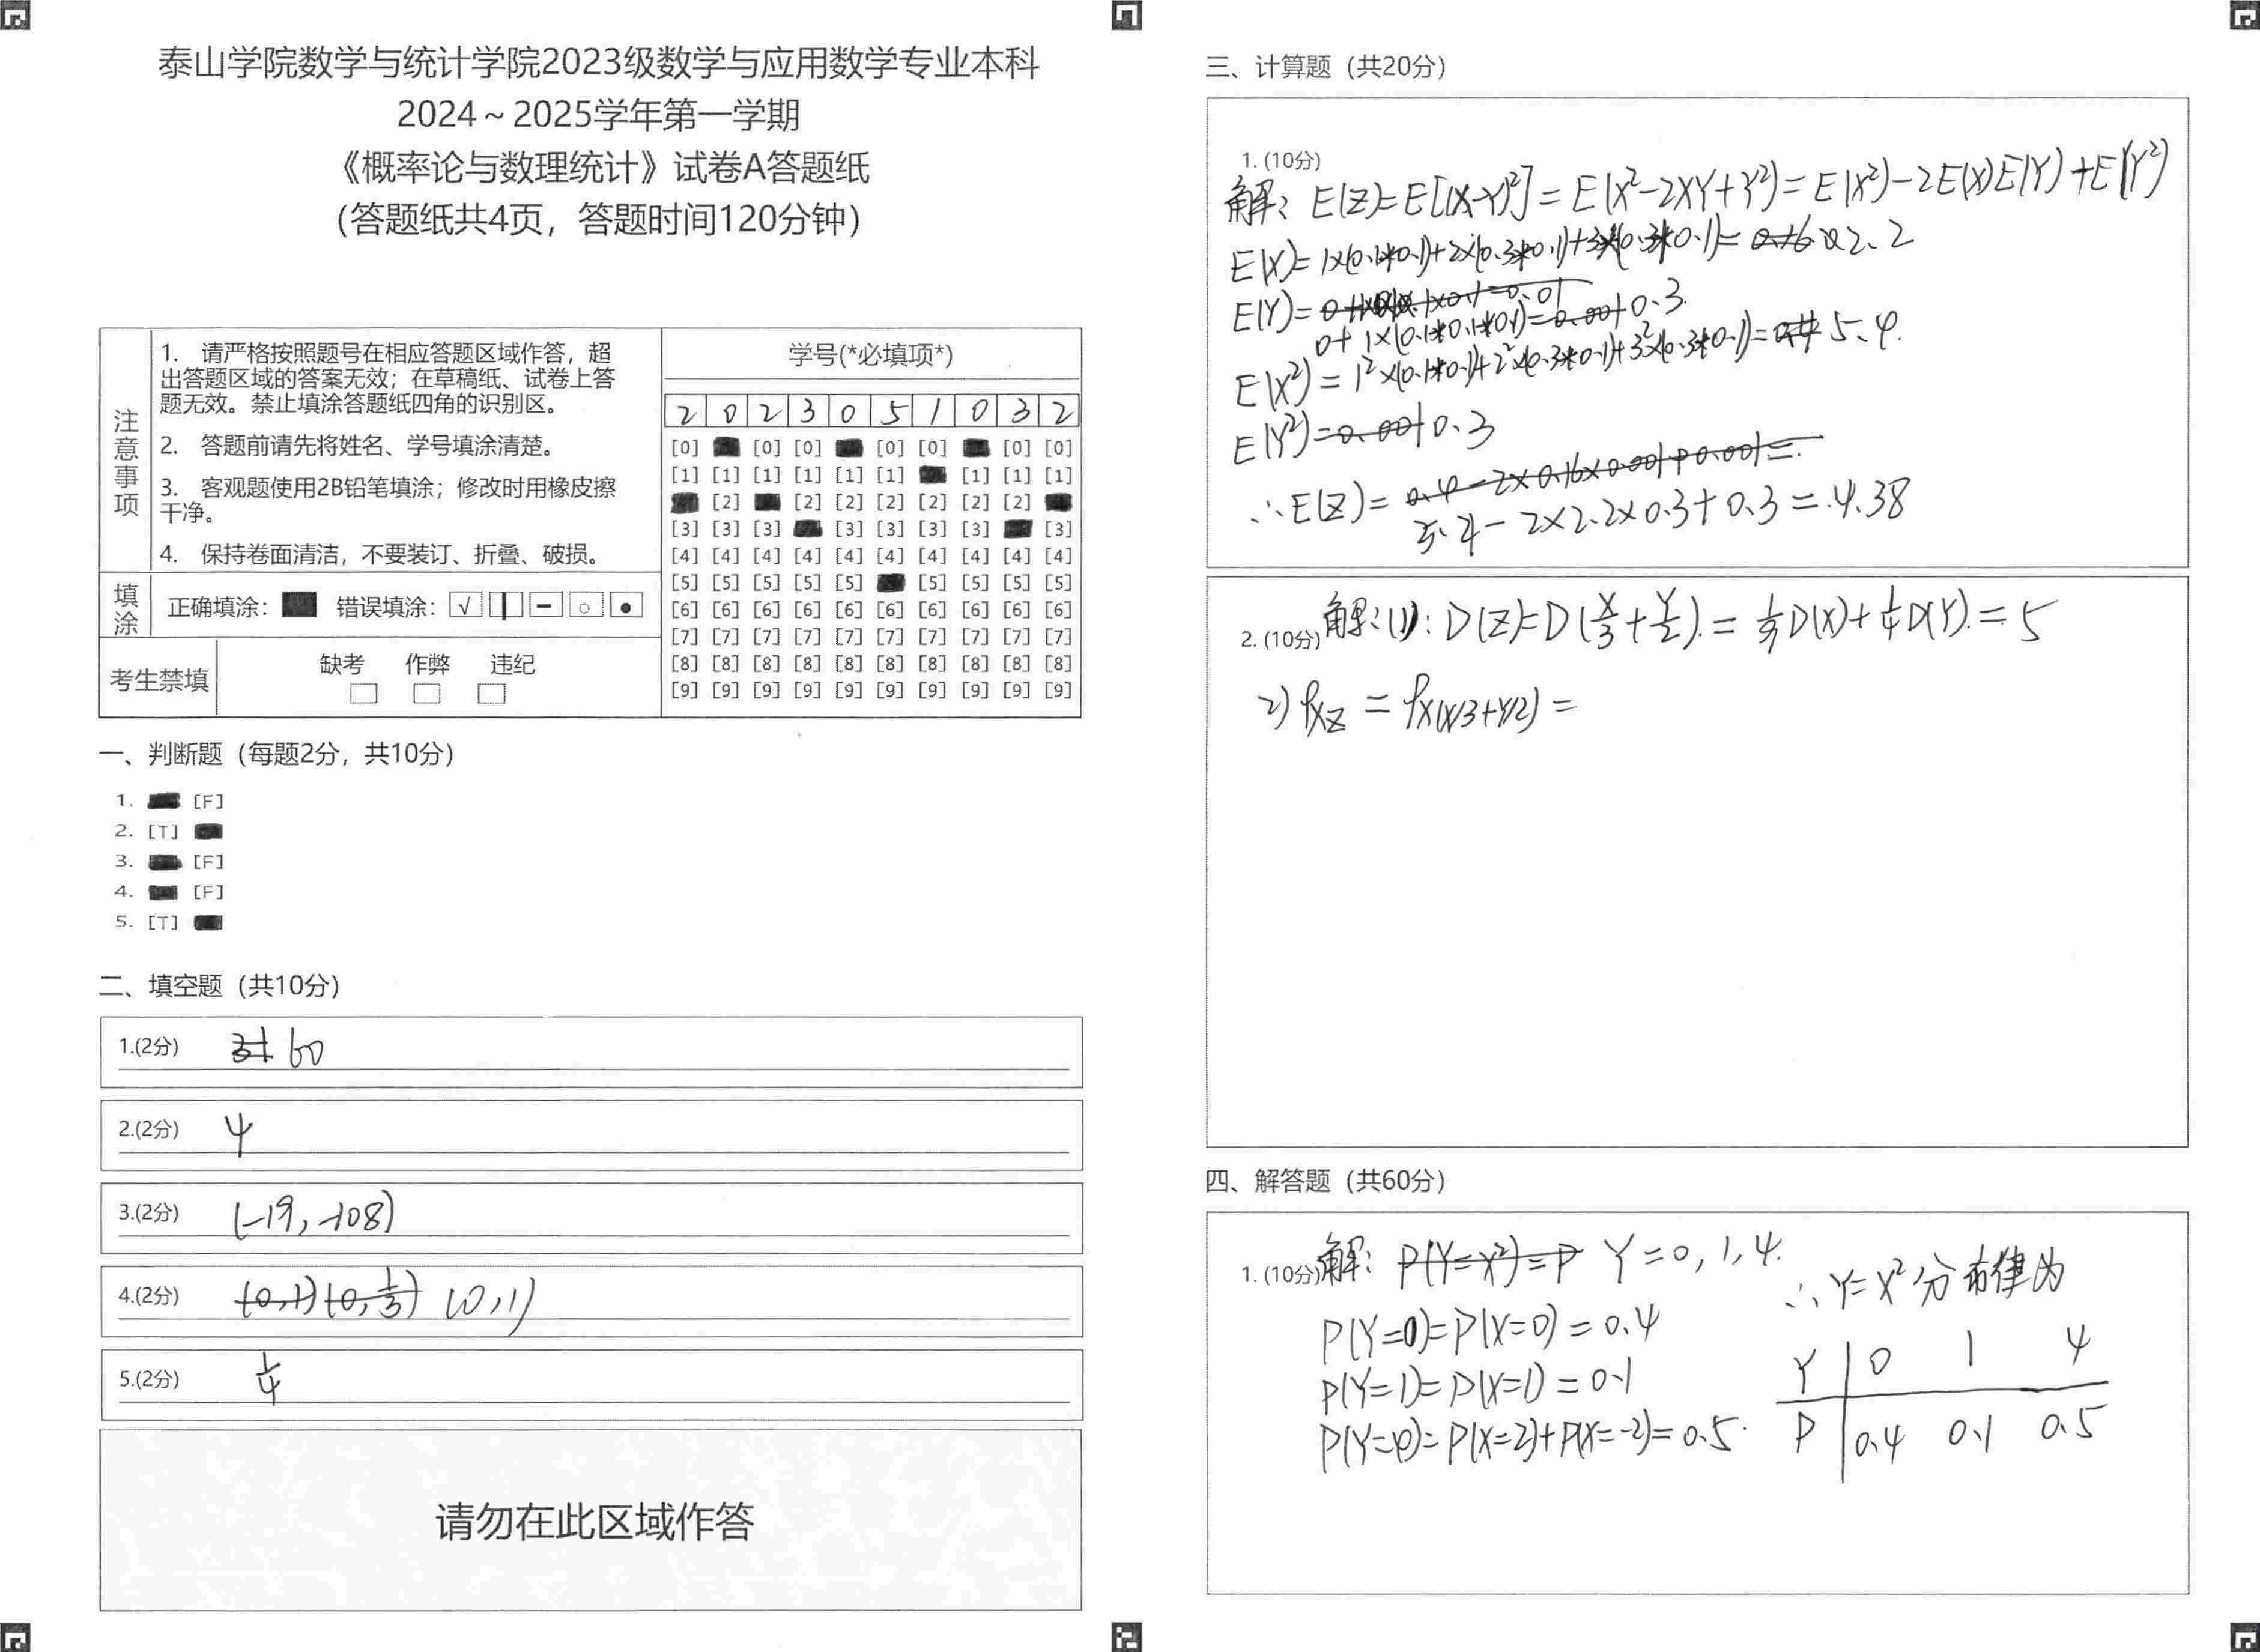 泰山学院数学与统计学院2023级数学与应用数学专业本科
2024～2025学年第一学期
《概率论与数理统计》试卷A答题纸
（答题纸共4页，答题时间120分钟）
注意事项
1. 请严格按照题号在相应答题区域作答，超
出答题区域的答案无效；在草稿纸、试卷上答
题无效。禁止填涂答题纸四角的识别区。
2. 答题前请先将姓名、学号填涂清楚。
3. 客观题使用2B铅笔填涂；修改时用橡皮擦
干净。
4. 保持卷面清洁，不要装订、折叠、破损。
填涂
正确填涂： 错误填涂：
考生禁填
缺考 作弊 违纪
学号(*必填项*)
2 0 2 3 0 5 1 0 3 2
[0] [0] [0] [0] [0] [0] [0]
[1] [1] [1] [1] [1] [1] [1] [1] [1]
[2] [2] [2] [2] [2] [2] [2]
[3] [3] [3] [3] [3] [3] [3] [3]
[4] [4] [4] [4] [4] [4] [4] [4] [4] [4]
[5] [5] [5] [5] [5] [5] [5] [5] [5]
[6] [6] [6] [6] [6] [6] [6] [6] [6] [6]
[7] [7] [7] [7] [7] [7] [7] [7] [7] [7]
[8] [8] [8] [8] [8] [8] [8] [8] [8] [8]
[9] [9] [9] [9] [9] [9] [9] [9] [9] [9]
一、判断题（每题2分，共10分）
1. [F]
2. [T]
3. [F]
4. [F]
5. [T]
二、填空题（共10分）
1.(2分) 60
2.(2分) 4
3.(2分) (-19, -108)
4.(2分) (0,1)
5.(2分) 1/4
请勿在此区域作答
三、计算题（共20分）
1. (10分)
解: E(Z)=E[(X-Y)²]=E(X²-2XY+Y²)=E(X²)-2E(X)E(Y)+E(Y²)
E(X)=1×(0.1+0.1)+2×(0.3+0.1)+3×(0.3+0.1)= 2.2
E(Y)=
0+1×(0.1+0.1+0.1)= 0.3
E(X²)=1²×(0.1+0.1)+2²×(0.3+0.1)+3²×(0.3+0.1)= 5.4.
E(Y²)= 0.3
∴E(Z)=
5.4-2×2.2×0.3+0.3=4.38
2. (10分) 解:(1): D(Z)=D(X/3+Y/2)=1/9D(X)+1/4D(Y)=5
2) ρXZ = ρX(X/3+Y/2) =
四、解答题（共60分）
1. (10分) 解: Y=0,1,4.
P(Y=0)=P(X=0)=0.4
P(Y=1)=P(X=1)=0.1
P(Y=4)=P(X=2)+P(X=-2)=0.5.
∴Y=X²分布律为
Y 0 1 4
P 0.4 0.1 0.5